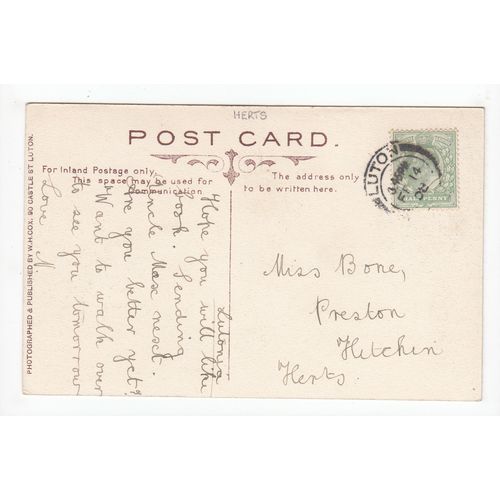 HERTS
POST CARD.
For Inland Postage only
This space may be used for
Communication.
The address only
to be written here.
PHOTOGRAPHED & PUBLISHED BY W.H.COX, 90 CASTLE ST LUTON.
Lutonja
Hope you will like
book. Sending
Uncle Max next.
Are you better yet?
Want to walk over
to see you tomorrow
Love N
Miss Bone,
Preston
Hitchin
Herts.
LUTON
14
HALFPENNY